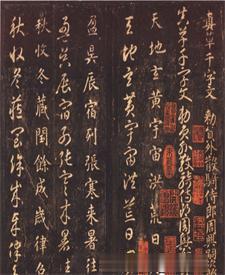 真草千字文 勅員外散騎侍郎周興嗣
真草千字文勅員外散騎侍郎周興嗣
天地玄黃宇宙洪荒日
天地玄黃宇宙洪荒日
盈昃辰宿列張寒来暑往
盈昃辰宿列張寒来暑往
秋收冬藏閏餘成歲律呂
秋收冬藏閏餘成歲律呂